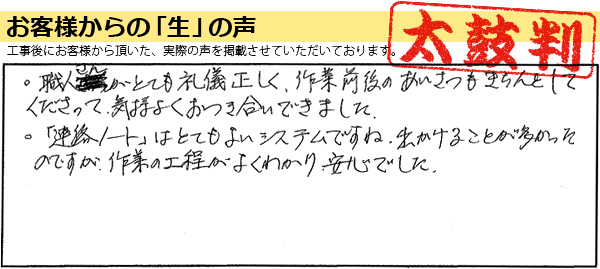 お客様からの「生」の声
工事後にお客様から頂いた、実際の声を掲載させていただいております。
太鼓判
。職人さんがとても礼儀正しく、作業前後のあいさつもきちんとして
くださって、気持よくおつき合いできました。
。「連絡ノート」はとてもよいシステムですね。出かけることが多かった
のですが、作業の工程がよくわかり、安心でした。